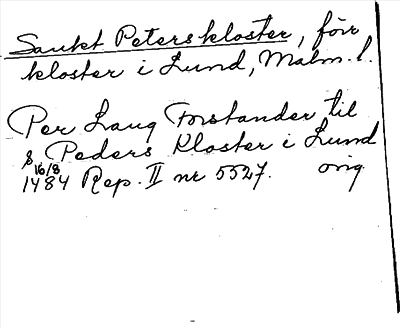 Sankt Peters kloster, förr
kloster i Lund, Malm. l.
Per Laug Forstander til
s. Peders Kloster i Lund
16/8
1484 Rep. II nr 5527. orig